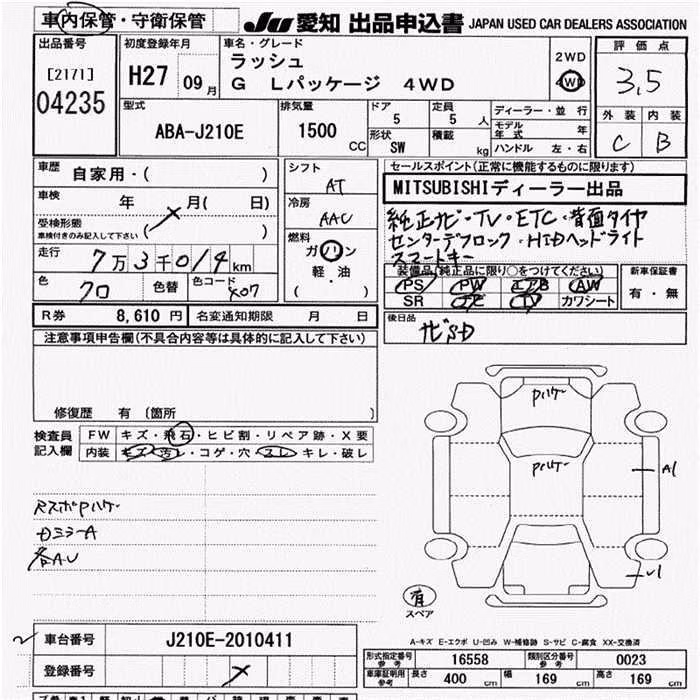 車内保管・守衛保管
JU 愛知 出品申込書 JAPAN USED CAR DEALERS ASSOCIATION
出品番号
[2171]
04235
初度登録年月
H27 09月
車名・グレード
ラッシュ
G Lパッケージ 4WD
2WD
4WD
評価点
3.5
外装 内装
C B
型式
ABA-J210E
排気量
1500 CC
ドア
5
定員
5 人
形状
SW
積載
kg
ディーラー・並行
モデル年式 年
ハンドル 左・右
車歴
自家用・( )
車検 年 月( 日)
受検形態
車検付きのみ記入して下さい ( )
走行
7万3千014km
色
クロ
色替
色コード
X07
シフト
AT
冷房
AAC
燃料
ガソリン
軽・油
( )
セールスポイント(正常に機能するものに限ります)
MITSUBISHIディーラー出品
純正ナビ・TV・ETC・背面タイヤ
センターデフロック・HIDヘッドライト
スマートキー
装備品(純正品に限り○をつけてください)
PS PW エアB AW
SR ナビ TV カワシート
新車保証書
有・無
後日品
ナビSD
R券 8,610 円 名変通知期限 月 日
注意事項申告欄(不具合内容等は具体的に記入して下さい)
修復歴 有 〔箇所 〕
検査員
記入欄
FW キズ・飛石・ヒビ割・リペア跡・X要
内装 キズ・汚レ・コゲ・穴・スレ・キレ・破レ
RスポPハゲ
Dミラー A
各AU
Pハゲ
Pハゲ
A1
U1
有
スペア
A-キズ E-エクボ U-凹み W-補修跡 S-サビ C-腐食 XX-交換済
車台番号 J210E-2010411
登録番号
形式指定番号
参考
16558
類別区分番号
参考
0023
車庫証明用
参考
長さ 400 cm 幅 169 cm 高さ 169 cm